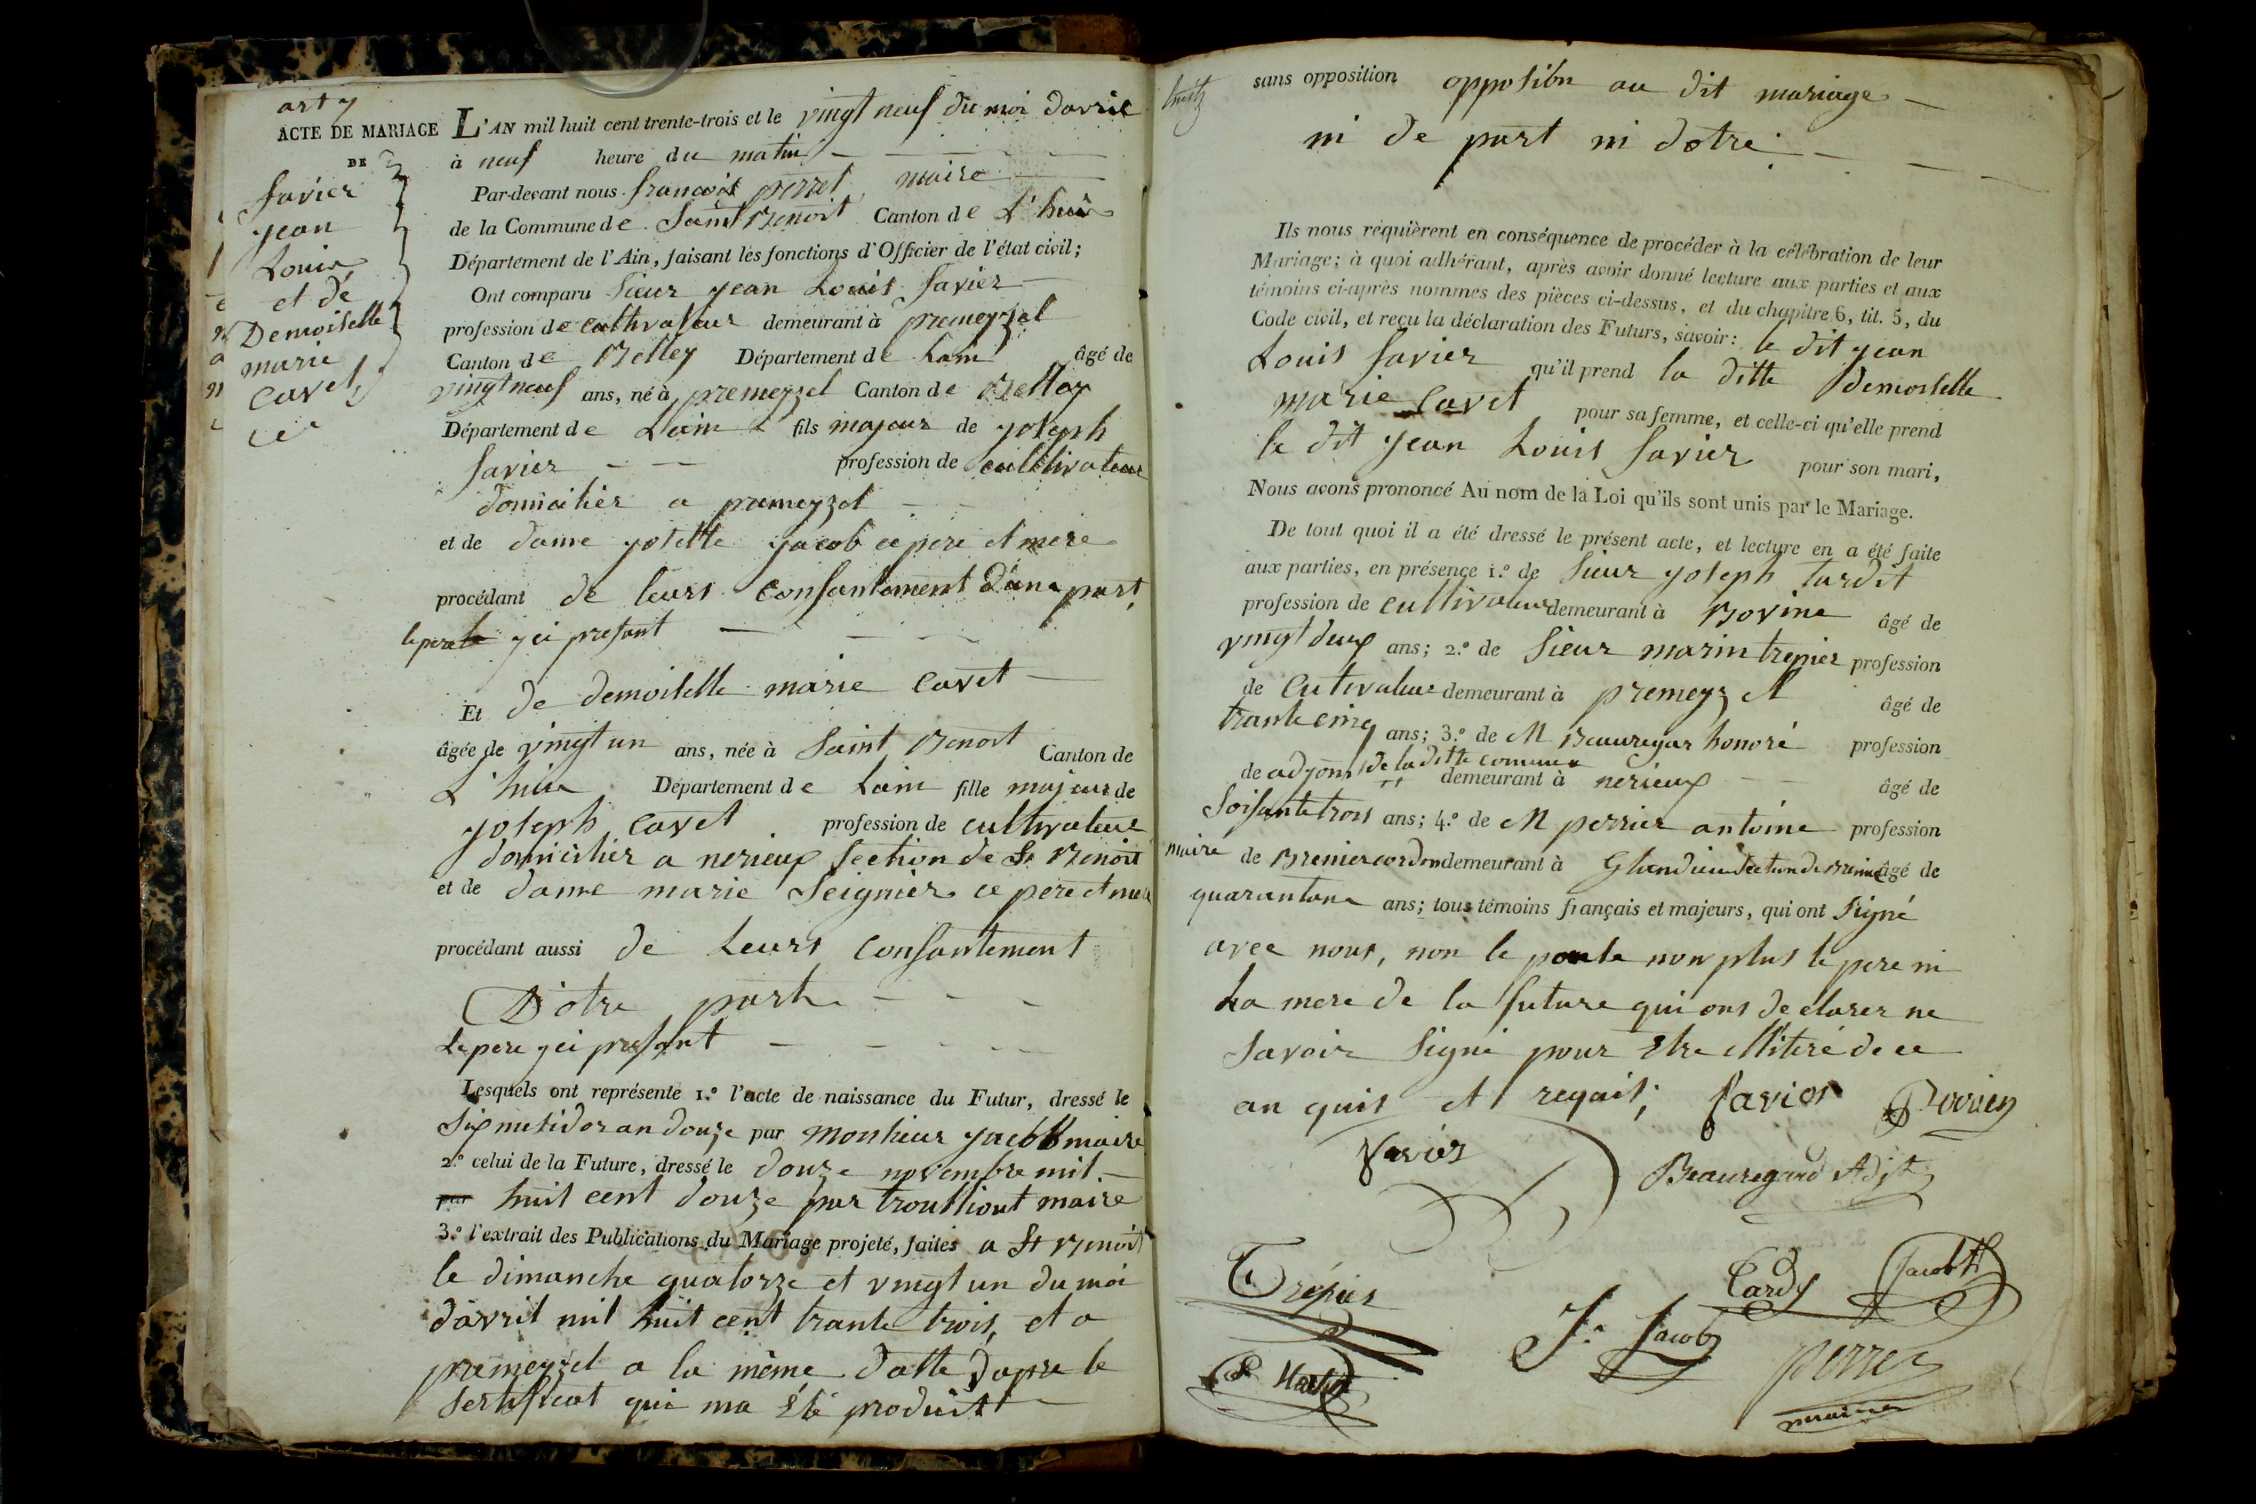 art 7
ACTE DE MARIAGE
DE
Savier
Jean
Louis
et de
Demoiselle
marie
Cavet
L'AN mil huit cent trente-trois et le vingt neuf du moi davril
à neuf heure du matin
Par-devant nous françois perret maire
de la Commune de Saint Benoit Canton de L'huis
Département de l'Ain, faisant les fonctions d'Officier de l'état civil;
Ont comparu Sieur jean Louis Savier
profession de cultivateur demeurant à premeyzel
Canton de Belley Département de Lain âgé de
vingt neuf ans, né à premeyzel Canton de Belley
Département de Lain fils majeur de joseph
Savier profession de cultivateur
domicilier a premeyzel
et de dame josette jacob ce pere et mere
procédant de leurs consantement d'une part
le pere yci presant
Et de demoiselle marie cavet
âgée de vingt un ans, née à Saint Benoit Canton de
L'huis Département de Lain fille majeur de
joseph cavet profession de cultivateur
domicilier a nerieux section de St Benoit
et de dame marie Seignier ce pere et mere
procédant aussi de Leurs consantement
D'otre part
Le pere yci presant
Lesquels ont représente 1.º l'acte de naissance du Futur, dressé le
Six metidor an douze par monsieur jacob maire
2.º celui de la Future, dressé le douze novembre mil
par huit cent douze par trouilliout maire
3.º l'extrait des Publications du Mariage projeté, faites a St Benoit
le dimanche quatorze et vingt un du moi
d'avril mil huit cent trante trois, et a
premeyzel a la même datte dapre le
sertificat qui ma été produit
sans opposition opposion au dit mariage
ni de part ni dotre
Ils nous requièrent en conséquence de procéder à la célébration de leur
Mariage; à quoi adhérant, après avoir donné lecture aux parties et aux
témoins ci-après nommés des pièces ci-dessus, et du chapitre 6, tit. 5, du
Code civil, et reçu la déclaration des Futurs, savoir: le dit jean
Louis Savier qu'il prend la ditte demoiselle
marie Cavet pour sa femme, et celle-ci qu'elle prend
le dit jean Louis Savier pour son mari,
Nous avons prononcé Au nom de la Loi qu'ils sont unis par le Mariage.
De tout quoi il a été dressé le présent acte, et lecture en a été faite
aux parties, en présence 1.º de Sieur joseph tardit
profession de cultivateur demeurant à Bovine âgé de
vingt deux ans; 2.º de Sieur marin trepier profession
de cutivateur demeurant à premeyzel âgé de
trante cinq ans; 3.º de M Beauregar honoré profession
de adjoint de la ditte commune demeurant à nerieux âgé de
Soisante trois ans; 4.º de M perrier antoine profession
maire de Brenier cordon demeurant à Glandieu section de Brenier âgé de
quarante ans; tous témoins français et majeurs, qui ont signé
avec nous, non le non plus le pere ni
La mere de la future qui ons declarer ne
savoir signé pour être illiteré de ce
an quis et reqait; Savier Perrier
Savier
Beauregard Adjt
Trépier
Tardy Jacob
Jh Jacob
perret
maire